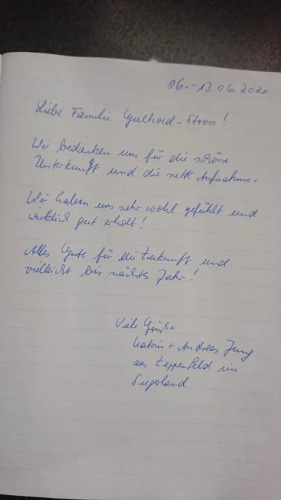 06.-13.06.2020
Liebe Familie !
Wir bedanken uns für die schöne
Unterkunft und die nette Aufnahme.
Wir haben uns sehr wohl gefühlt und
wirklich gut erholt!
Alles Gute für die Zukunft und
vielleicht bis nächstes Jahr!
Viele Grüße
Katrin + Andreas Jung
aus Zeppenfeld im
Siegerland